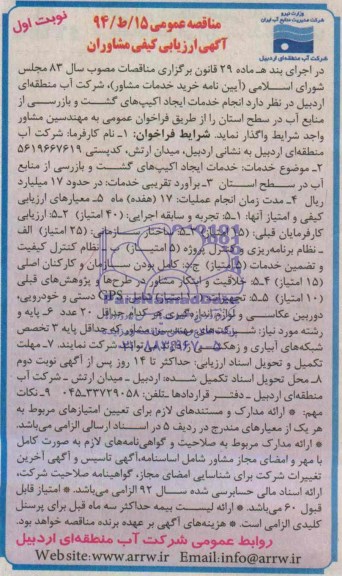 نوبت اول
مناقصه عمومی ۱۵/ط/۹۴
آگهی ارزیابی کیفی مشاوران
وزارت نیرو
شرکت مدیریت منابع آب ایران
شرکت آب منطقه‌ای اردبیل
در اجرای بند هـ ماده ۲۹ قانون برگزاری مناقصات مصوب سال ۸۳ مجلس
شورای اسلامی (آیین نامه خرید خدمات مشاور)، شرکت آب منطقه‌ای
اردبیل در نظر دارد انجام خدمات ایجاد اکیپ‌های گشت و بازرسی از
منابع آب در سطح استان را از طریق فراخوان عمومی به مهندسین مشاور
واجد شرایط واگذار نماید. شرایط فراخوان: ۱ـ نام کارفرما: شرکت آب
منطقه‌ای اردبیل به نشانی اردبیل، میدان ارتش، کدپستی ۵۶۱۹۶۶۷۶۱۹
۲ـ موضوع خدمات: خدمات ایجاد اکیپ‌های گشت و بازرسی از منابع
آب در سطح استان ۳ـ برآورد تقریبی خدمات: در حدود ۱۷ میلیارد
ریال ۴ـ مدت زمان انجام عملیات: ۱۷ (هفده) ماه ۵ـ معیارهای ارزیابی
کیفی و امتیاز آنها: ۱ـ۵: تجربه و سابقه اجرایی: (۴۰ امتیاز) ۲ـ۵: ارزیابی
کارفرمایان قبلی: (۵ امتیاز) ۳ـ۵ ساختار سازمانی: (۲۵ امتیاز) الف
ـ نظام برنامه‌ریزی و کنترل پروژه (۵ امتیاز) بـ نظام کنترل کیفیت
و تضمین خدمات (۵ امتیاز) ج: کامل بودن سازمان و کارکنان اصلی
(۱۵ امتیاز) ۴ـ۵: خلاقیت و ابتکار مشاور در طرح‌ها و پژوهش‌های قبلی
(۱۰ امتیاز) ۵ـ۵: تجهیزات GPS دستی و خودرویی،
دوربین عکاسی و لوازم اندازه‌گیری هر کدام حداقل ۲۰ عدد ۶ـ پایه و
رشته مورد نیاز: شرکت‌های مهندسین مشاور که حداقل پایه ۳ تخصص
شبکه‌های آبیاری و زهکشی شرکت نمایند. ۷ـ مهلت
تکمیل و تحویل اسناد ارزیابی: حداکثر تا ۱۴ روز پس از آگهی نوبت دوم
۸ـ محل تحویل اسناد تکمیل شده: اردبیل ـ میدان ارتش ـ شرکت آب
منطقه‌ای اردبیل ـ دفتر قراردادها ـ تلفن: ۳۳۷۲۹۰۵۸ـ۰۴۵ ۹ـ نکات
مهم: * ارائه مدارک و مستندهای لازم برای تعیین امتیازهای مربوط به
هر یک از معیارهای مندرج در ردیف ۵ در اسناد ارسالی الزامی می‌باشد.
* ارائه مدارک مربوط به صلاحیت و گواهی‌نامه‌های لازم به صورت کامل
با مهر و امضای مجاز مشاور شامل اساسنامه، آگهی تاسیس و آگهی آخرین
تغییرات شرکت برای شناسایی امضای مجاز، گواهینامه صلاحیت شرکت،
ارائه اسناد مالی حسابرسی شده سال ۹۲ الزامی می‌باشد. * امتیاز قابل
قبول ۶۰ می‌باشد. * ارائه لیست بیمه حداکثر سه ماه قبل برای پرسنل
کلیدی الزامی است. * هزینه‌های آگهی بر عهده برنده مناقصه خواهد بود.
روابط عمومی شرکت آب منطقه‌ای اردبیل
Website:www.arrw.ir Email:info@arrw.ir